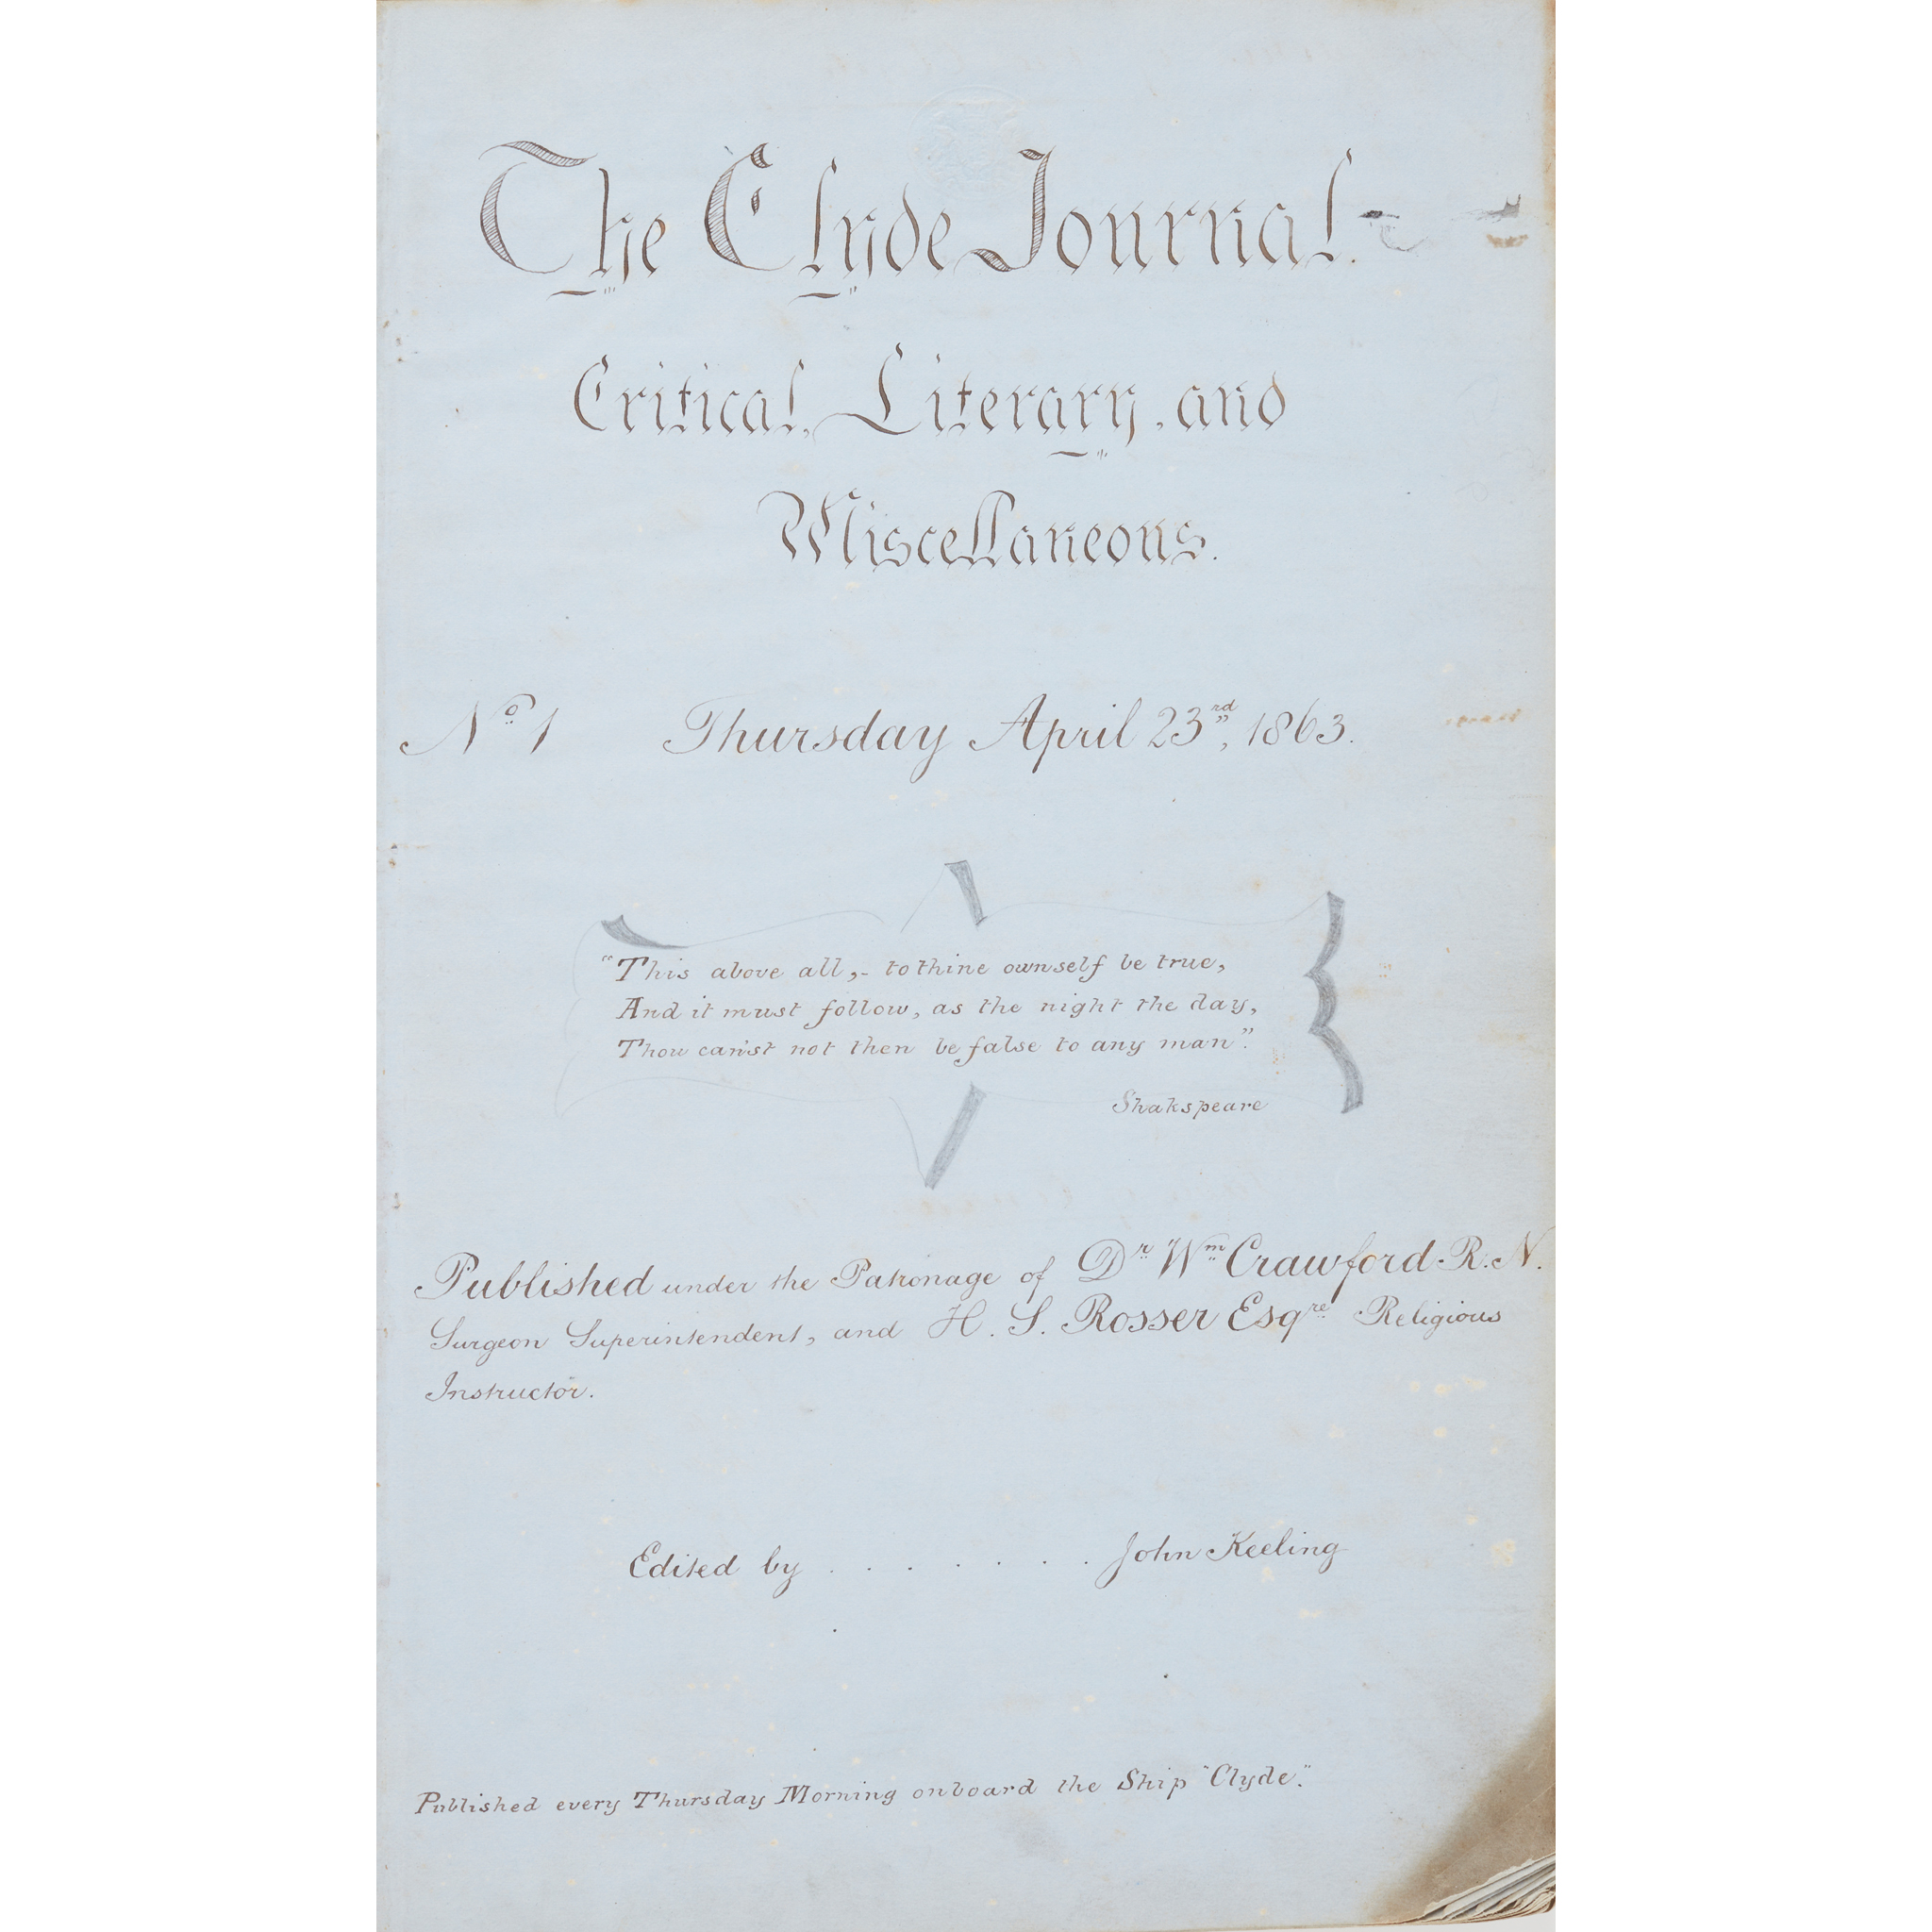 The Clyde Journal.
Critical, Literary, and
Miscellaneous.
No 1 Thursday April 23rd, 1863.
"This above all,- to thine ownself be true,
And it must follow, as the night the day,
Thou can'st not then be false to any man".
Shakspeare
Published under the Patronage of Dr Wm Crawford R. N.
Surgeon Superintendent, and H. S. Rosser Esqre Religious
Instructor.
Edited by . . . . . . . John Keeling
Published every Thursday Morning onboard the Ship "Clyde".